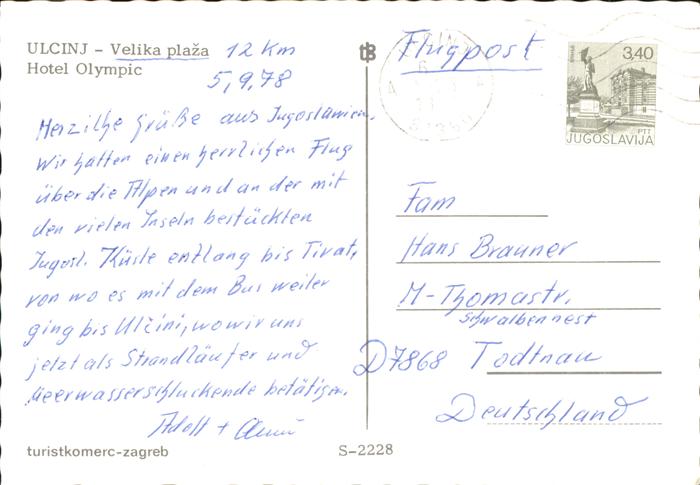 ULCINJ – Velika plaža 12 Km
Hotel Olympic
5,9,78
Herzliche Grüße aus Jugoslawien,
wir hatten einen herrlichen Flug
über die Alpen und an der mit
den vielen Inseln bestückten
Jugosl. Küste entlang bis Tivat,
von wo es mit dem Bus weiter
ging bis Ulčini, wo wir uns
jetzt als Strandläufer und
Meerwasserschluckende betätigen.
Adolf +
turistkomerc-zagreb
S-2228
tB
Flugpost
3,40
PTT
JUGOSLAVIJA
Fam
Hans Brauner
M-Thomastr.
Schwalbennest
D7868 Todtnau
Deutschland